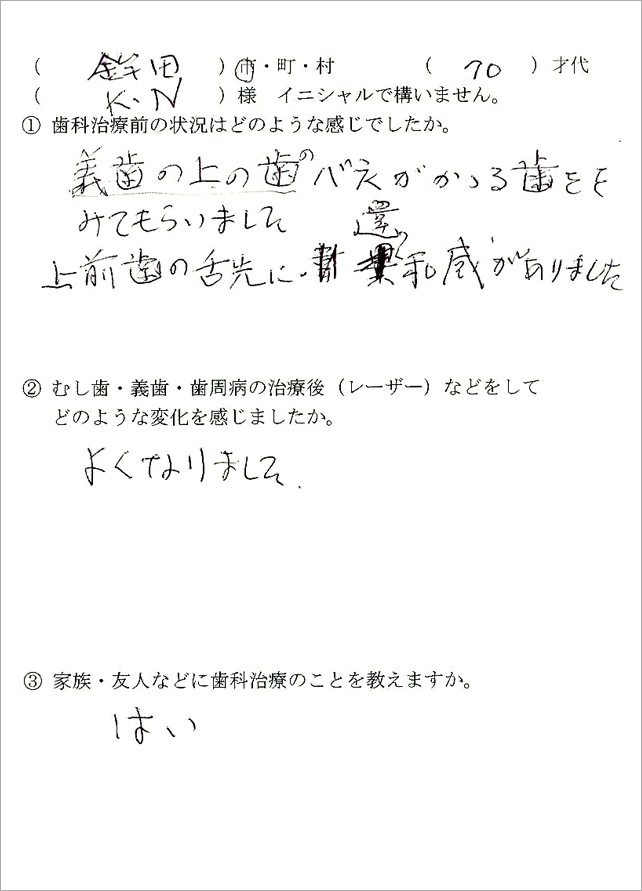 ( 鉾田 ) 市・町・村 ( 70 ) 才代
( K・N ) 様 イニシャルで構いません。
① 歯科治療前の状況はどのような感じでしたか。
義歯の上の歯のバネがかかる歯をを
みてもらいました
上前歯の舌先に 違和感がありました
② むし歯・義歯・歯周病の治療後（レーザー）などをして
どのような変化を感じましたか。
よくなりました.
③ 家族・友人などに歯科治療のことを教えますか。
はい